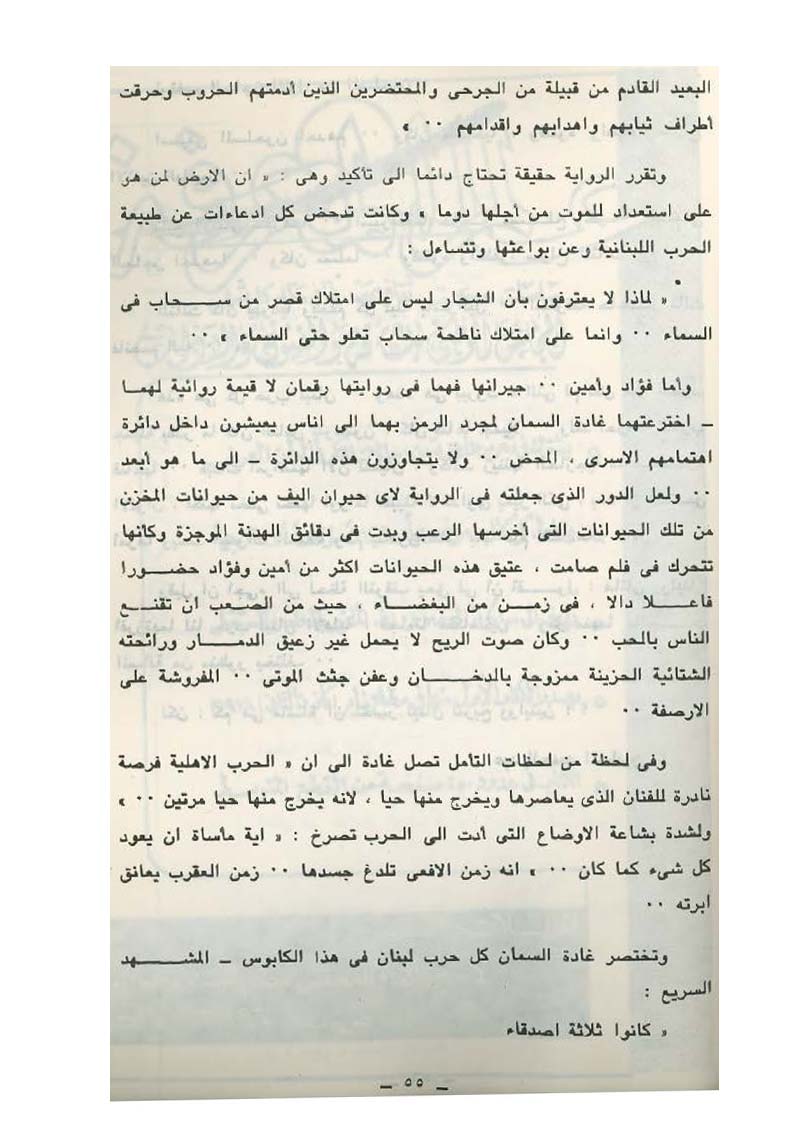 البعيد القادم من قبيلة من الجرحى والمحتضرين الذين أدمتهم الحروب وحرقت
أطراف ثيابهم واهدابهم واقدامهم ٠٠ »
وتقرر الرواية حقيقة تحتاج دائما الى تأكيد وهى : « ان الارض لمن هو
على استعداد للموت من أجلها دوما » وكانت تدحض كل ادعاءات عن طبيعة
الحرب اللبنانية وعن بواعثها وتتساءل :
« لماذا لا يعترفون بأن الشجار ليس على امتلاك قصر من سحاب فى
السماء ٠٠ وانما على امتلاك ناطحة سحاب تعلو حتى السماء » ٠٠
وأما فؤاد وأمين ٠٠ جيرانها فهما فى روايتها رقمان لا قيمة روائية لهما
ــ اخترعتهما غادة السمان لمجرد الرمز بهما الى اناس يعيشون داخل دائرة
اهتمامهم الاسرى ، المحض ٠٠ ولا يتجاوزون هذه الدائرة ــ الى ما هو أبعد
٠٠ ولعل الدور الذى جعلته فى الرواية لاى حيوان اليف من حيوانات المخزن
من تلك الحيوانات التى أخرسها الرعب وبدت فى دقائق الهدنة الموجزة وكأنها
تتحرك فى فلم صامت ، عتيق هذه الحيوانات اكثر من أمين وفؤاد حضورا
فاعلا دالا ، فى زمن من البغضاء ، حيث من الصعب ان تقنع
الناس بالحب ٠٠ وكان صوت الريح لا يحمل غير زعيق الدمار ورائحته
الشتائية الحزينة ممزوجة بالدخان وعفن جثث الموتى ٠٠ المفروشة على
الارصفة ٠٠
وفى لحظة من لحظات التأمل تصل غادة الى ان « الحرب الاهلية فرصة
نادرة للفنان الذى يعاصرها ويخرج منها حيا ، لانه يخرج منها حيا مرتين ٠٠ »
ولشدة بشاعة الاوضاع التى أدت الى الحرب تصرخ : « اية مأساة ان يعود
كل شىء كما كان ٠٠ » انه زمن الافعى تلدغ جسدها ٠٠ زمن العقرب يعانق
ابرته ٠٠
وتختصر غادة السمان كل حرب لبنان فى هذا الكابوس ــ المشهد
السريع :
« كانوا ثلاثة اصدقاء
ــ ٥٥ ــ